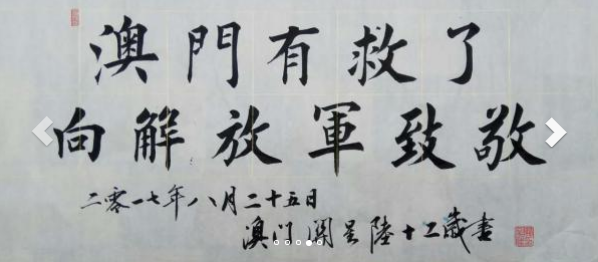 澳門有救了
向解放軍致敬
二零一七年八月二十五日
澳门 関星陸十二歲書